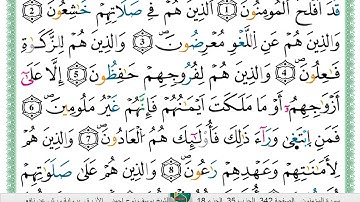 قَدَ اَفْلَحَ اَلْمُومِنُونَ ۝١ اَلذِينَ هُمْ فِي صَلَاتِهِمْ خَٰشِعُونَ ۝٢
وَالذِينَ هُمْ عَنِ اِللَّغْوِ مُعْرِضُونَ ۝٣ وَالذِينَ هُمْ لِلزَّكَوٰةِ
فَٰعِلُونَ ۝٤ وَالذِينَ هُمْ لِفُرُوجِهِمْ حَٰفِظُونَ ۝٥ إِلَّا عَلَىٰ
أَزْوَٰجِهِمُۥٓ أَوْ مَا مَلَكَتَ اَيْمَٰنُهُمْ فَإِنَّهُمْ غَيْرُ مَلُومِينَ ۝٦
فَمَنِ اِبْتَغَىٰ وَرَآءَ ذَٰلِكَ فَأُوْلَٰٓئِكَ هُمُ اُلْعَادُونَ ۝٧ وَالذِينَ هُمْ
لِأَمَٰنَٰتِهِمْ وَعَهْدِهِمْ رَٰعُونَ ۝٨ وَالذِينَ هُمْ عَلَىٰ صَلَوَٰتِهِمْ
الصفحة 342 الحزب 35 الجزء 18